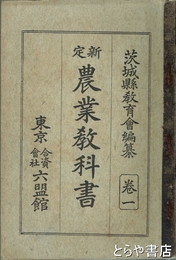 茨城縣教育會編纂
卷一
新定
農業教科書
東京
合資會社
六盟館
とらや書店